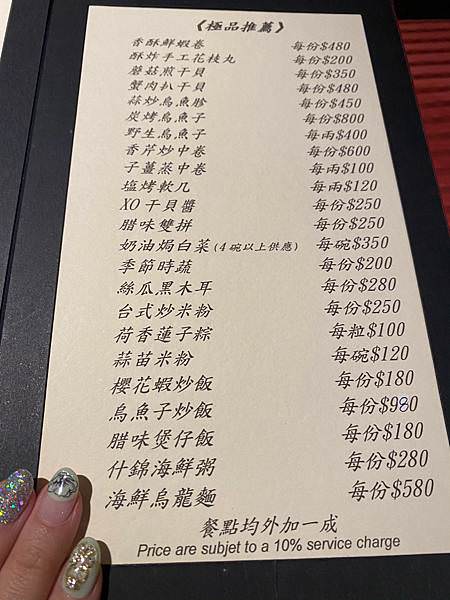 《極品推薦》
香酥鮮蝦卷 每份$480
酥炸手工花枝丸 每份$200
蘑菇煎干貝 每份$350
蟹肉扒干貝 每份$480
蒜炒烏魚膘 每份$450
炭烤烏魚子 每份$800
野生烏魚子 每兩$400
香芹炒中卷 每份$600
子薑蒸中卷 每兩$100
塩烤軟几 每兩$120
XO干貝醬 每份$250
腊味雙拼 每份$250
奶油焗白菜(4碗以上供應) 每碗$350
季節時蔬 每份$200
絲瓜黑木耳 每份$280
台式炒米粉 每份$250
荷香蓮子粽 每粒$100
蒜苗米粉 每碗$120
櫻花蝦炒飯 每份$180
烏魚子炒飯 每份$980
腊味煲仔飯 每份$180
什錦海鮮粥 每份$280
海鮮烏龍麵 每份$580
餐點均外加一成
Price are subjet to a 10% service charge